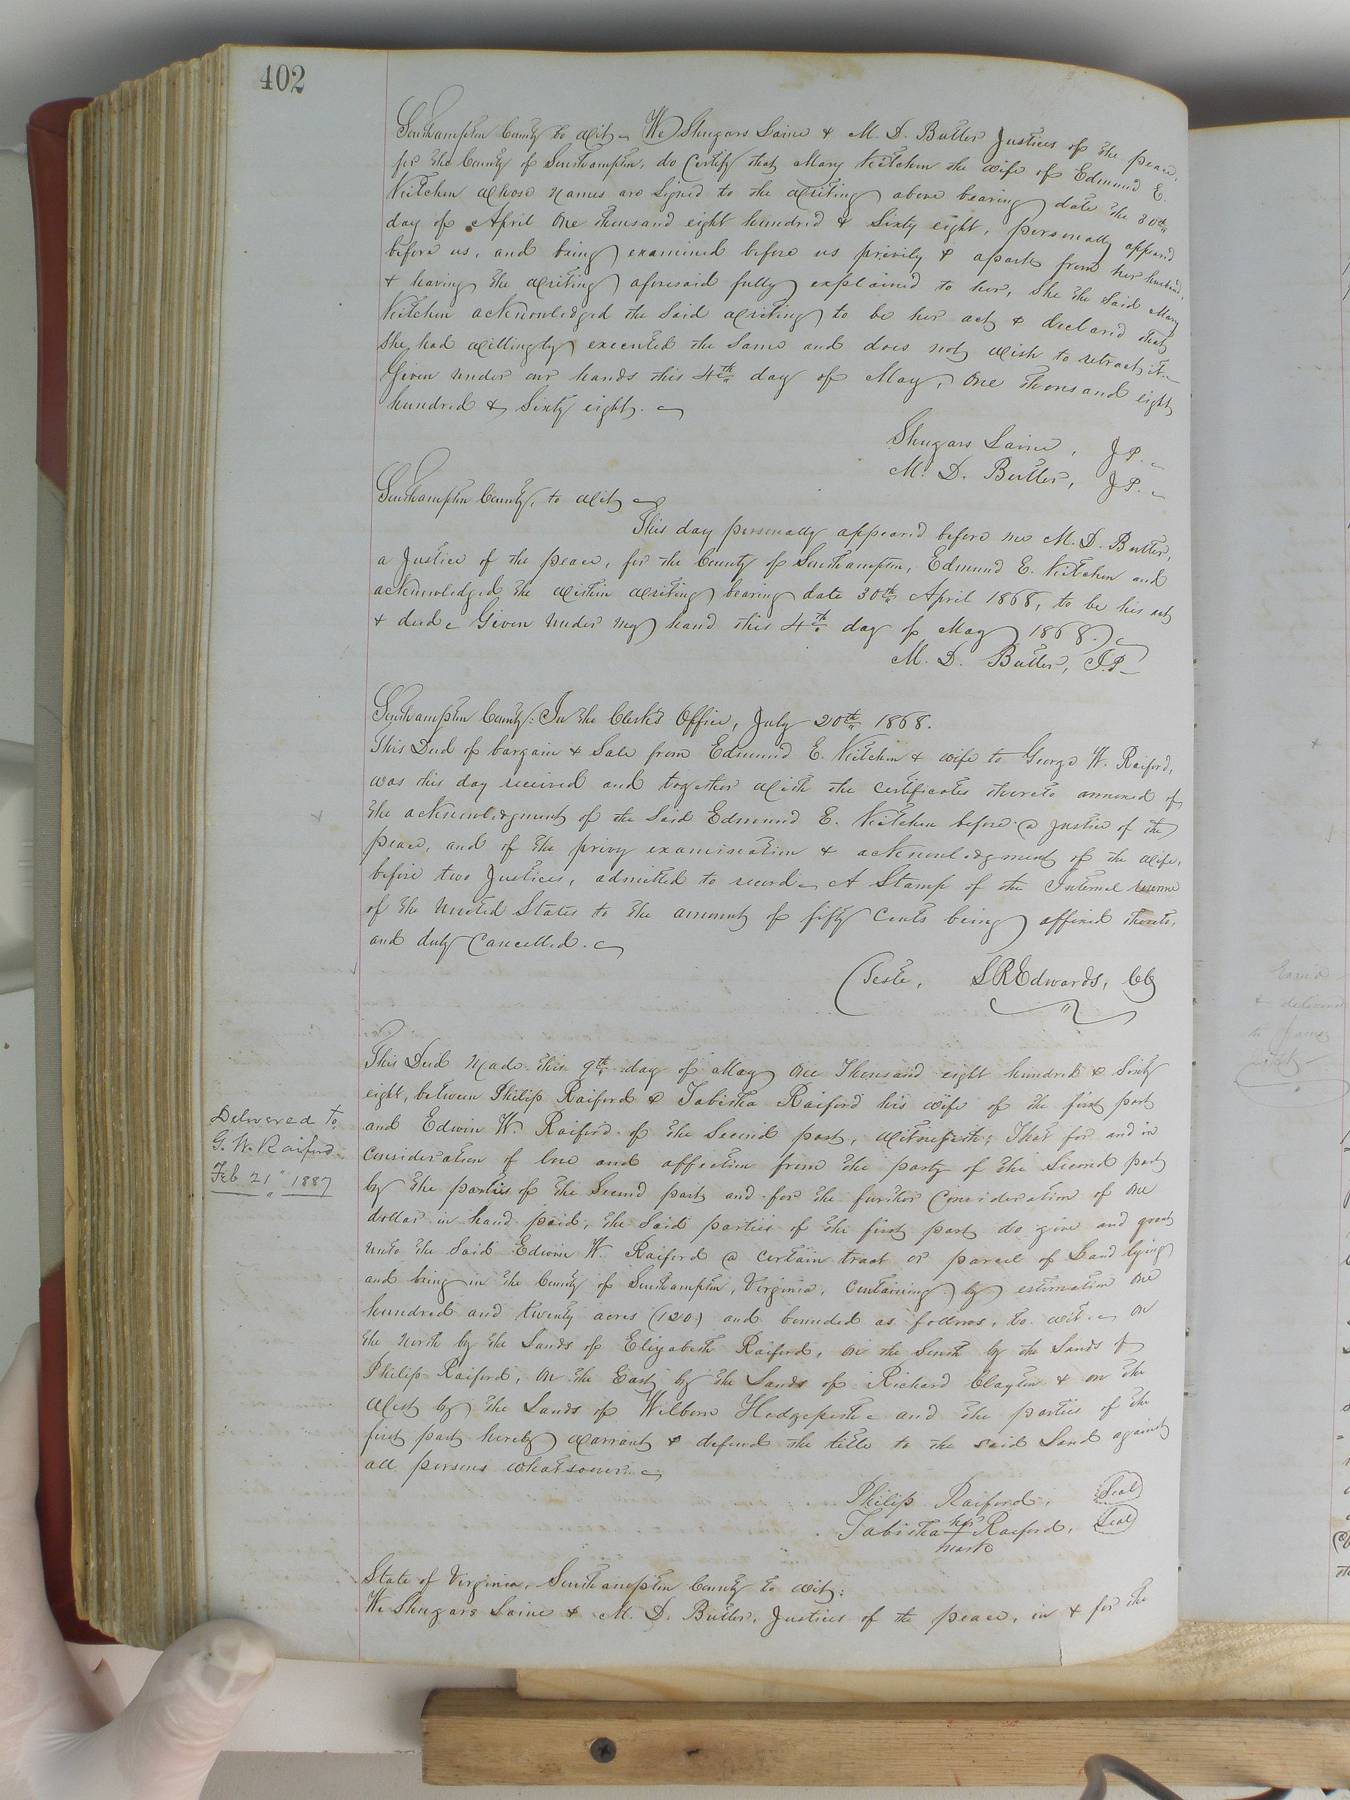 402
Southampton County to wit We Shugars Laine & M. D. Butler Justices of the peace,
for the County of Southampton, do Certify that Mary Kitchen the wife of Edmund E.
Kitchen whose names are Signed to the writing above bearing date the 30th
day of April One thousand eight hundred & Sixty eight, personally appeared
before us, and being examined before us privily & apart from her husband,
& having the writing aforesaid fully explained to her, She the Said Mary
Kitchen acknowledged the Said writing to be her act & declared that
She had willingly executed the Same and does not wish to retract it.
Given under our hands this 4th day of May, One thousand eight
hundred & Sixty eight.
Shugars Laine, J.P.
M. D. Butler, J.P.
Southampton County, to wit
This day personally appeared before me M. D. Butler,
a Justice of the peace, for the County of Southampton, Edmund E. Kitchen and
acknowledged the within writing bearing date 30th April 1868, to be his act
& deed Given under my hand this 4th day of May 1868.
M. D. Butler, J.P.
Southampton County: In the Clerk's Office, July 20th 1868.
This Deed of bargain & Sale from Edmund E. Kitchen & wife to George W. Raiford,
was this day received and together with the certificates thereto annexed of
the acknowledgment of the Said Edmund E. Kitchen before a Justice of the
peace, and of the privy examination & acknowledgment of the wife,
before two Justices, admitted to record A Stamp of the Internal revenue
of the United States to the amount of fifty Cents being affixed thereto,
and duly Cancelled.
Teste, L R Edwards, CC
This Deed made this 9th day of May One Thousand eight hundred & Sixty
eight, between Philip Raiford & Tabitha Raiford his wife of the first part
and Edwin W. Raiford of the Second part, witnesseth; That for and in
Consideration of love and affection from the party of the Second part
by the parties of the Second part and for the further Consideration of One
dollar in hand paid, the Said parties of the first part do give and grant
unto the Said Edwin W. Raiford a certain tract or parcel of Land lying
and being in the County of Southampton, Virginia, Containing by estimation One
hundred and twenty acres (120) and bounded as follows, to wit. On
the North by the Lands of Elizabeth Raiford, on the South by the Lands of
Philip Raiford, on the East by the Lands of Richard Clayton & on the
West by the Lands of Wilborn Hedgepeth and the parties of the
first part hereby warrant & defend the title to the said Land against
all persons whatsoever.
Philip Raiford, Seal
Tabitha her Raiford, Seal
mark
Delivered to
G. W. Raiford
Feb 21" 1887
State of Virginia, Southampton County to wit:
We Shugars Laine & M. D. Butler, Justices of the peace, in & for the